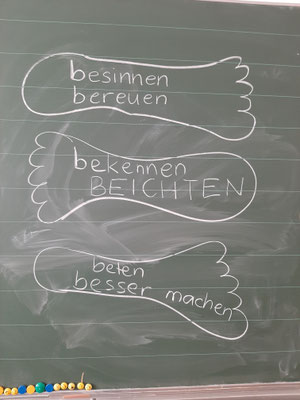 besinnen
bereuen
bekennen
BEICHTEN
beten
besser machen